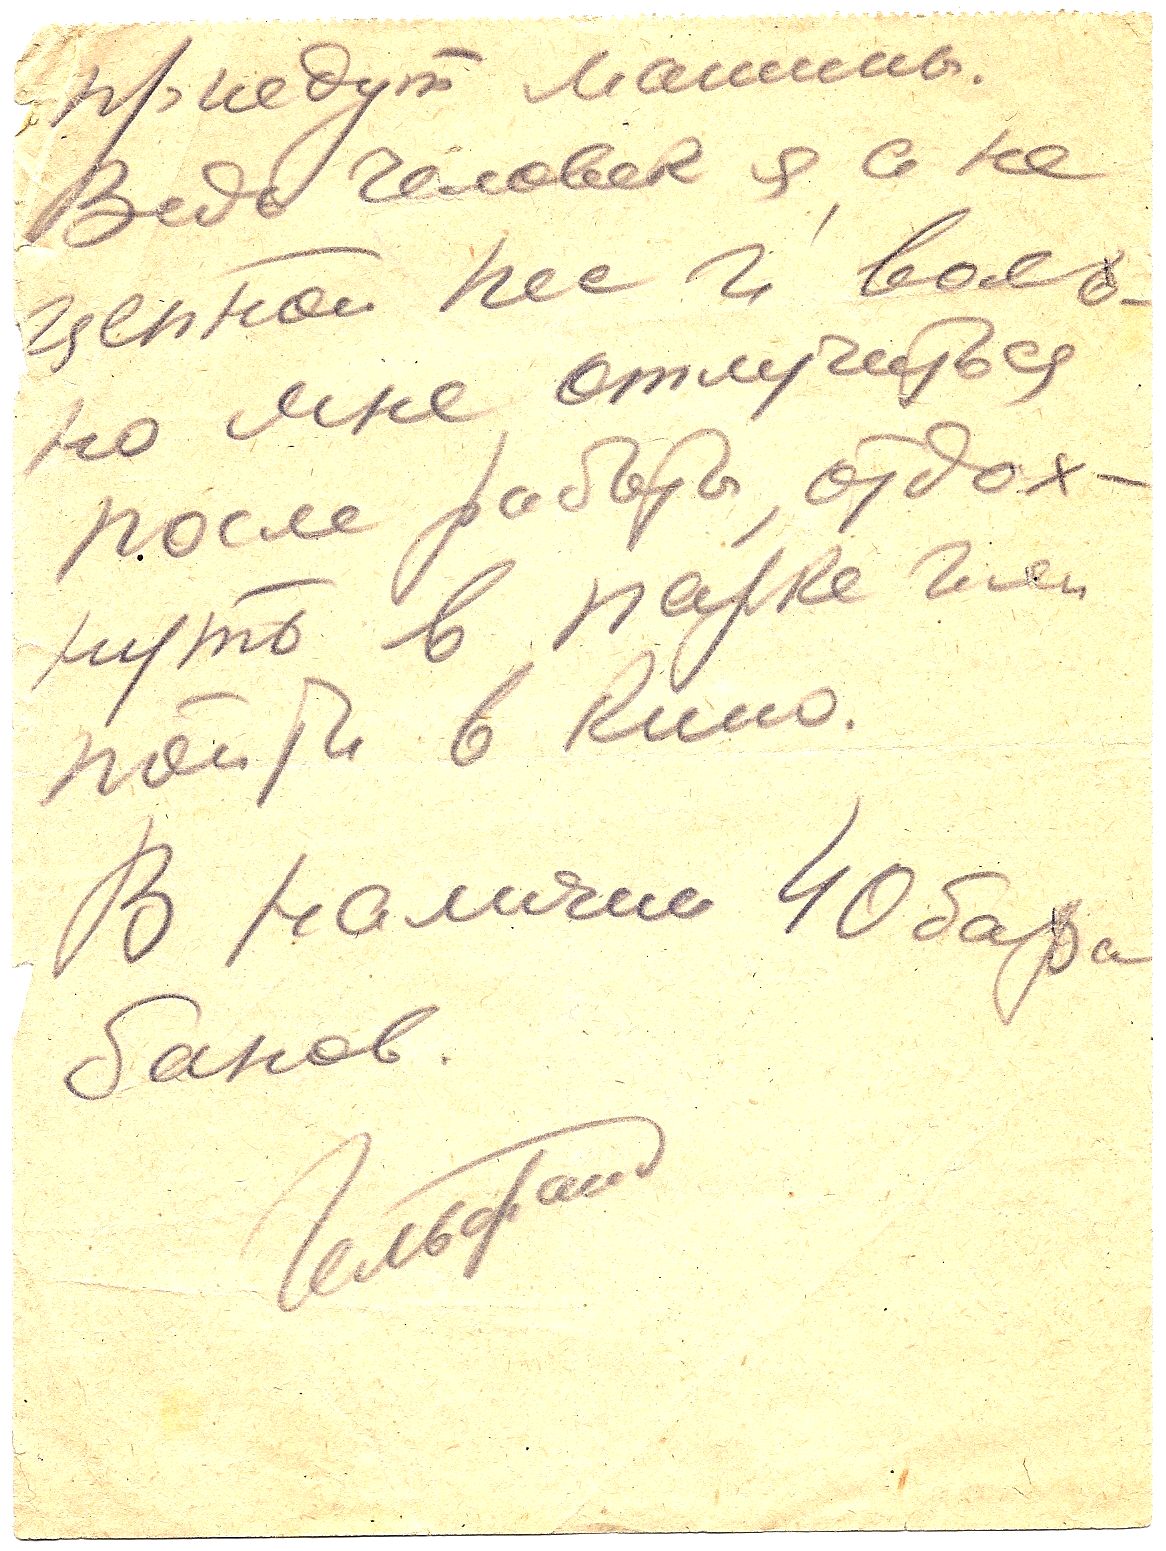 приедут машины.
Ведь человек я, а не
цепной пес и воль-
но мне отлучиться
после работы, отдох-
нуть в парке или
пойти в кино.
В наличии 40 бара
банов.
Гельфанд